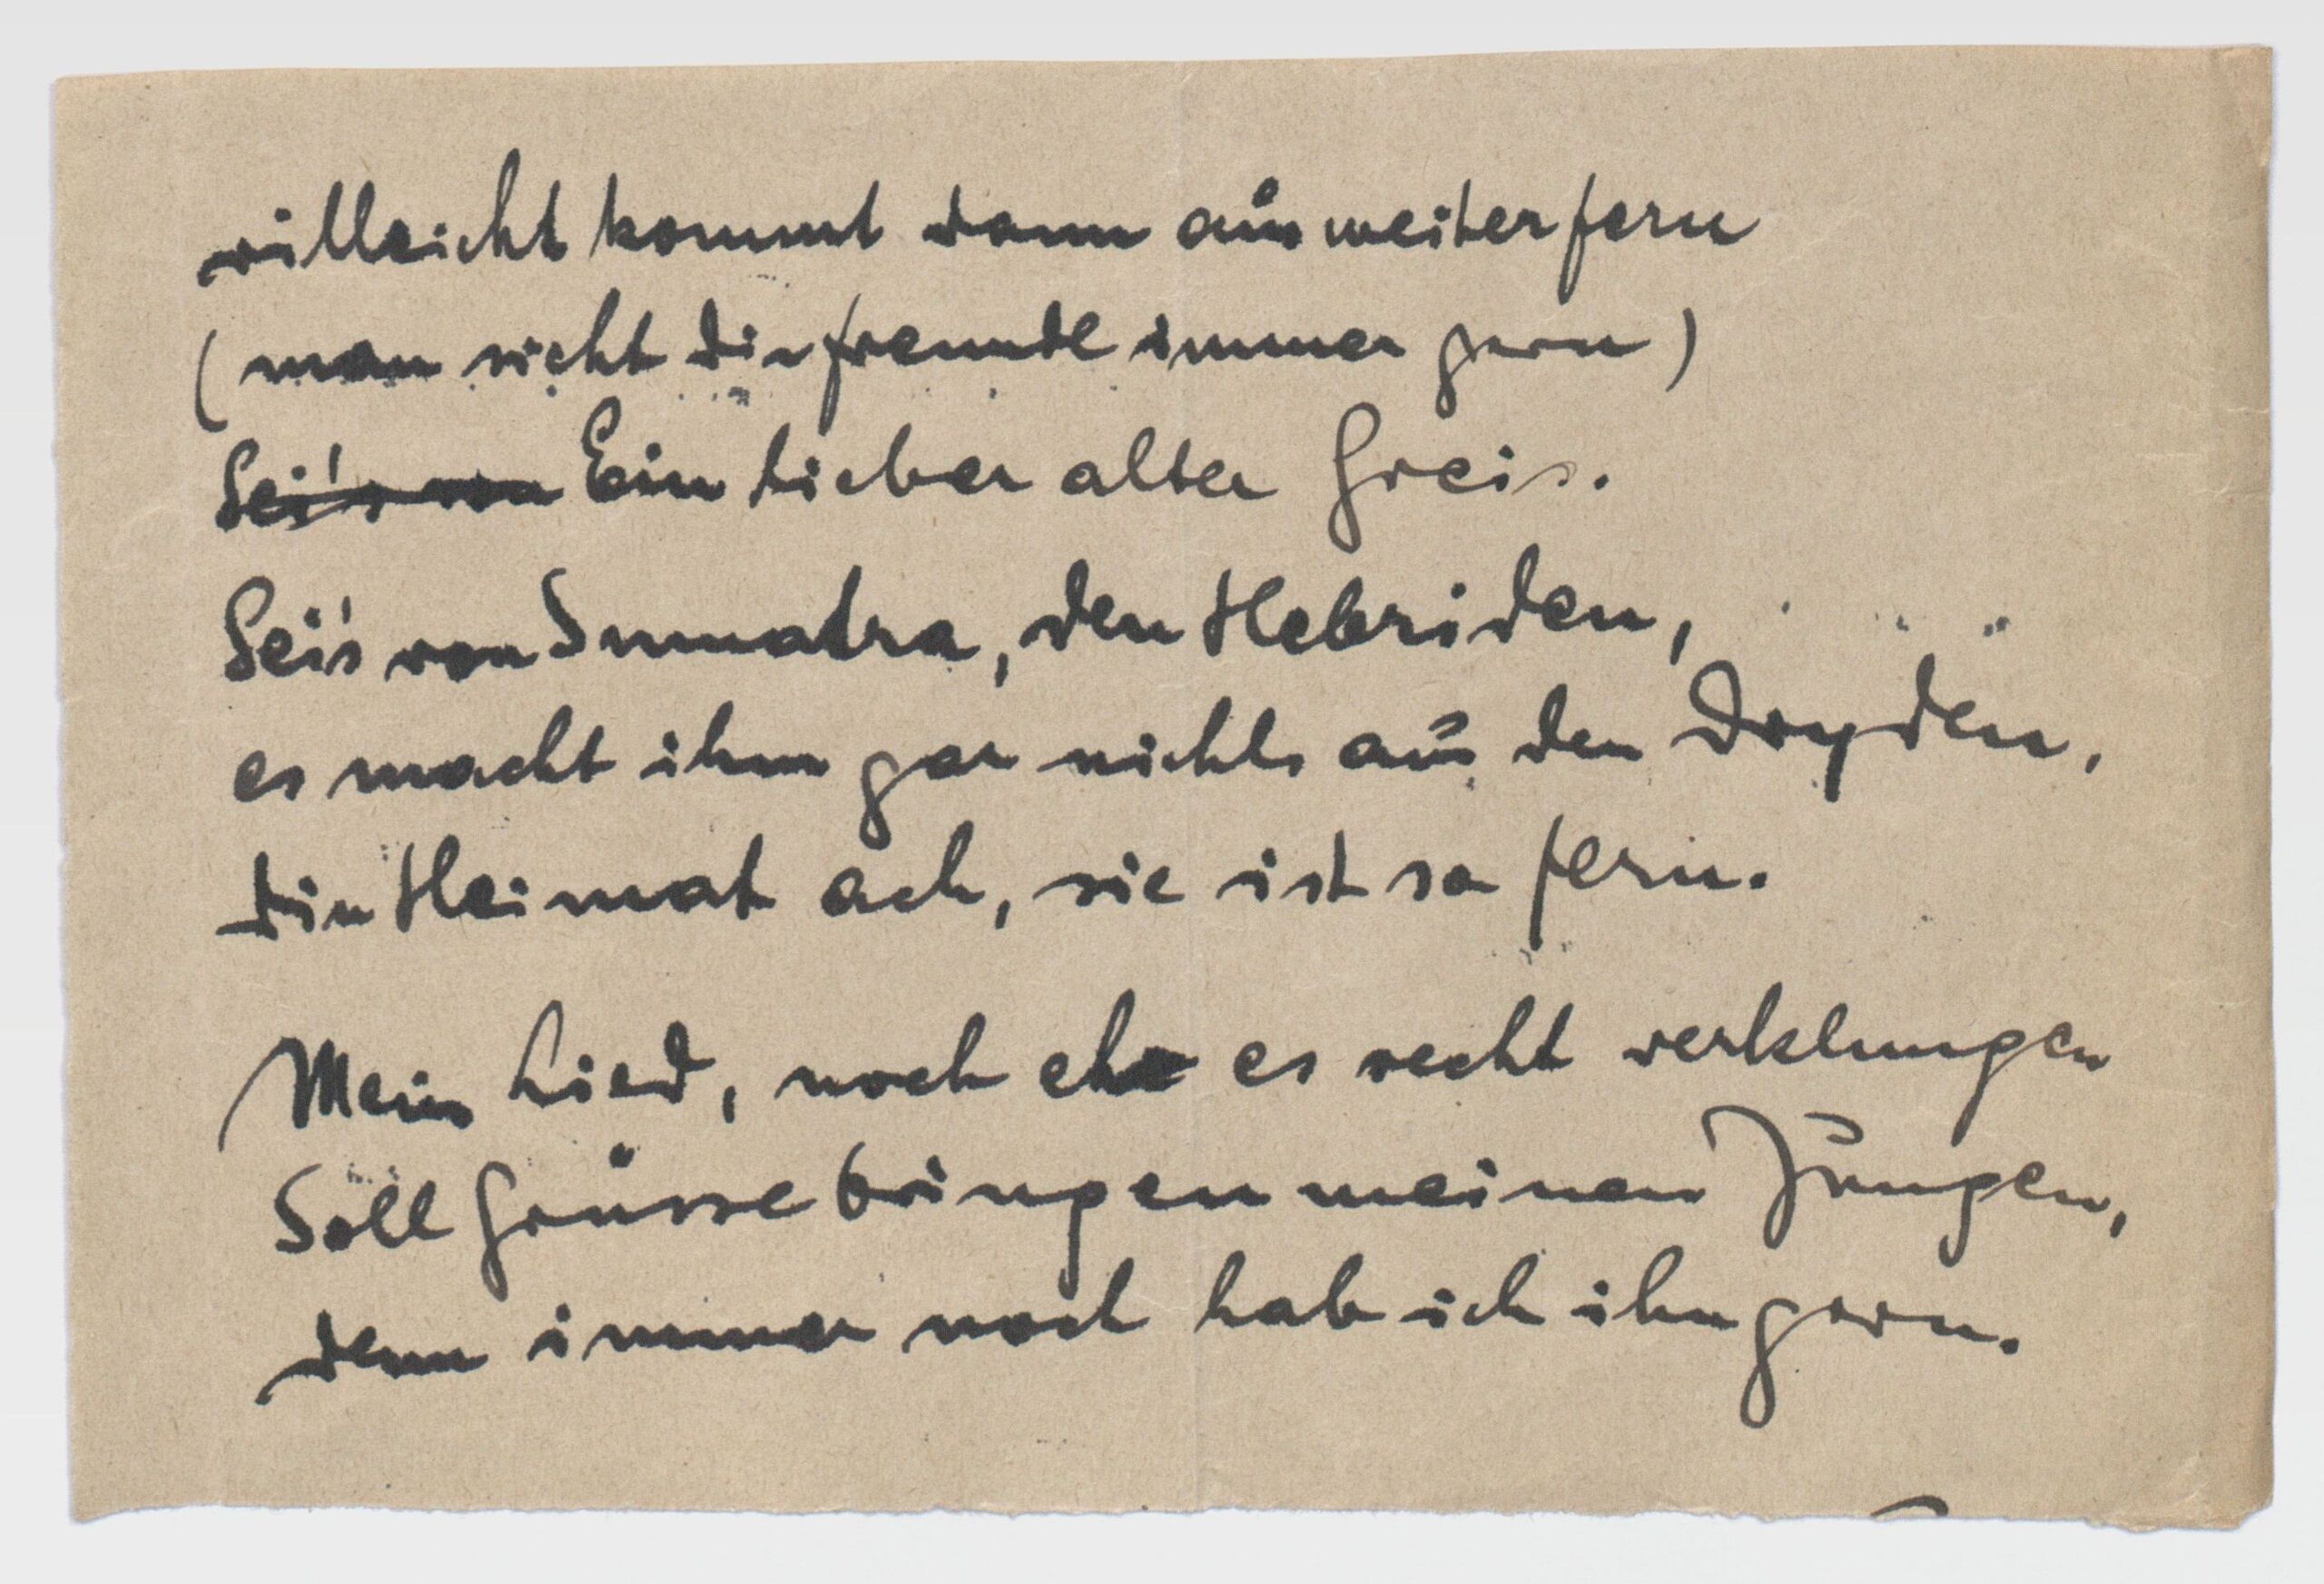 vielleicht kommt dann aus weiter fern
(man sieht die freunde immer gern)
Sei's von Ein lieber alter Greis.
Sei's von Sumatra, den Hebriden,
es macht ihm gar nichts aus den Dryden,
die Heimat ach, sie ist so fern.
Mein Lied, noch ehe es recht verklungen
Soll Grüsse bringen meinen Jungen,
denn immer noch hab ich ihn gern.